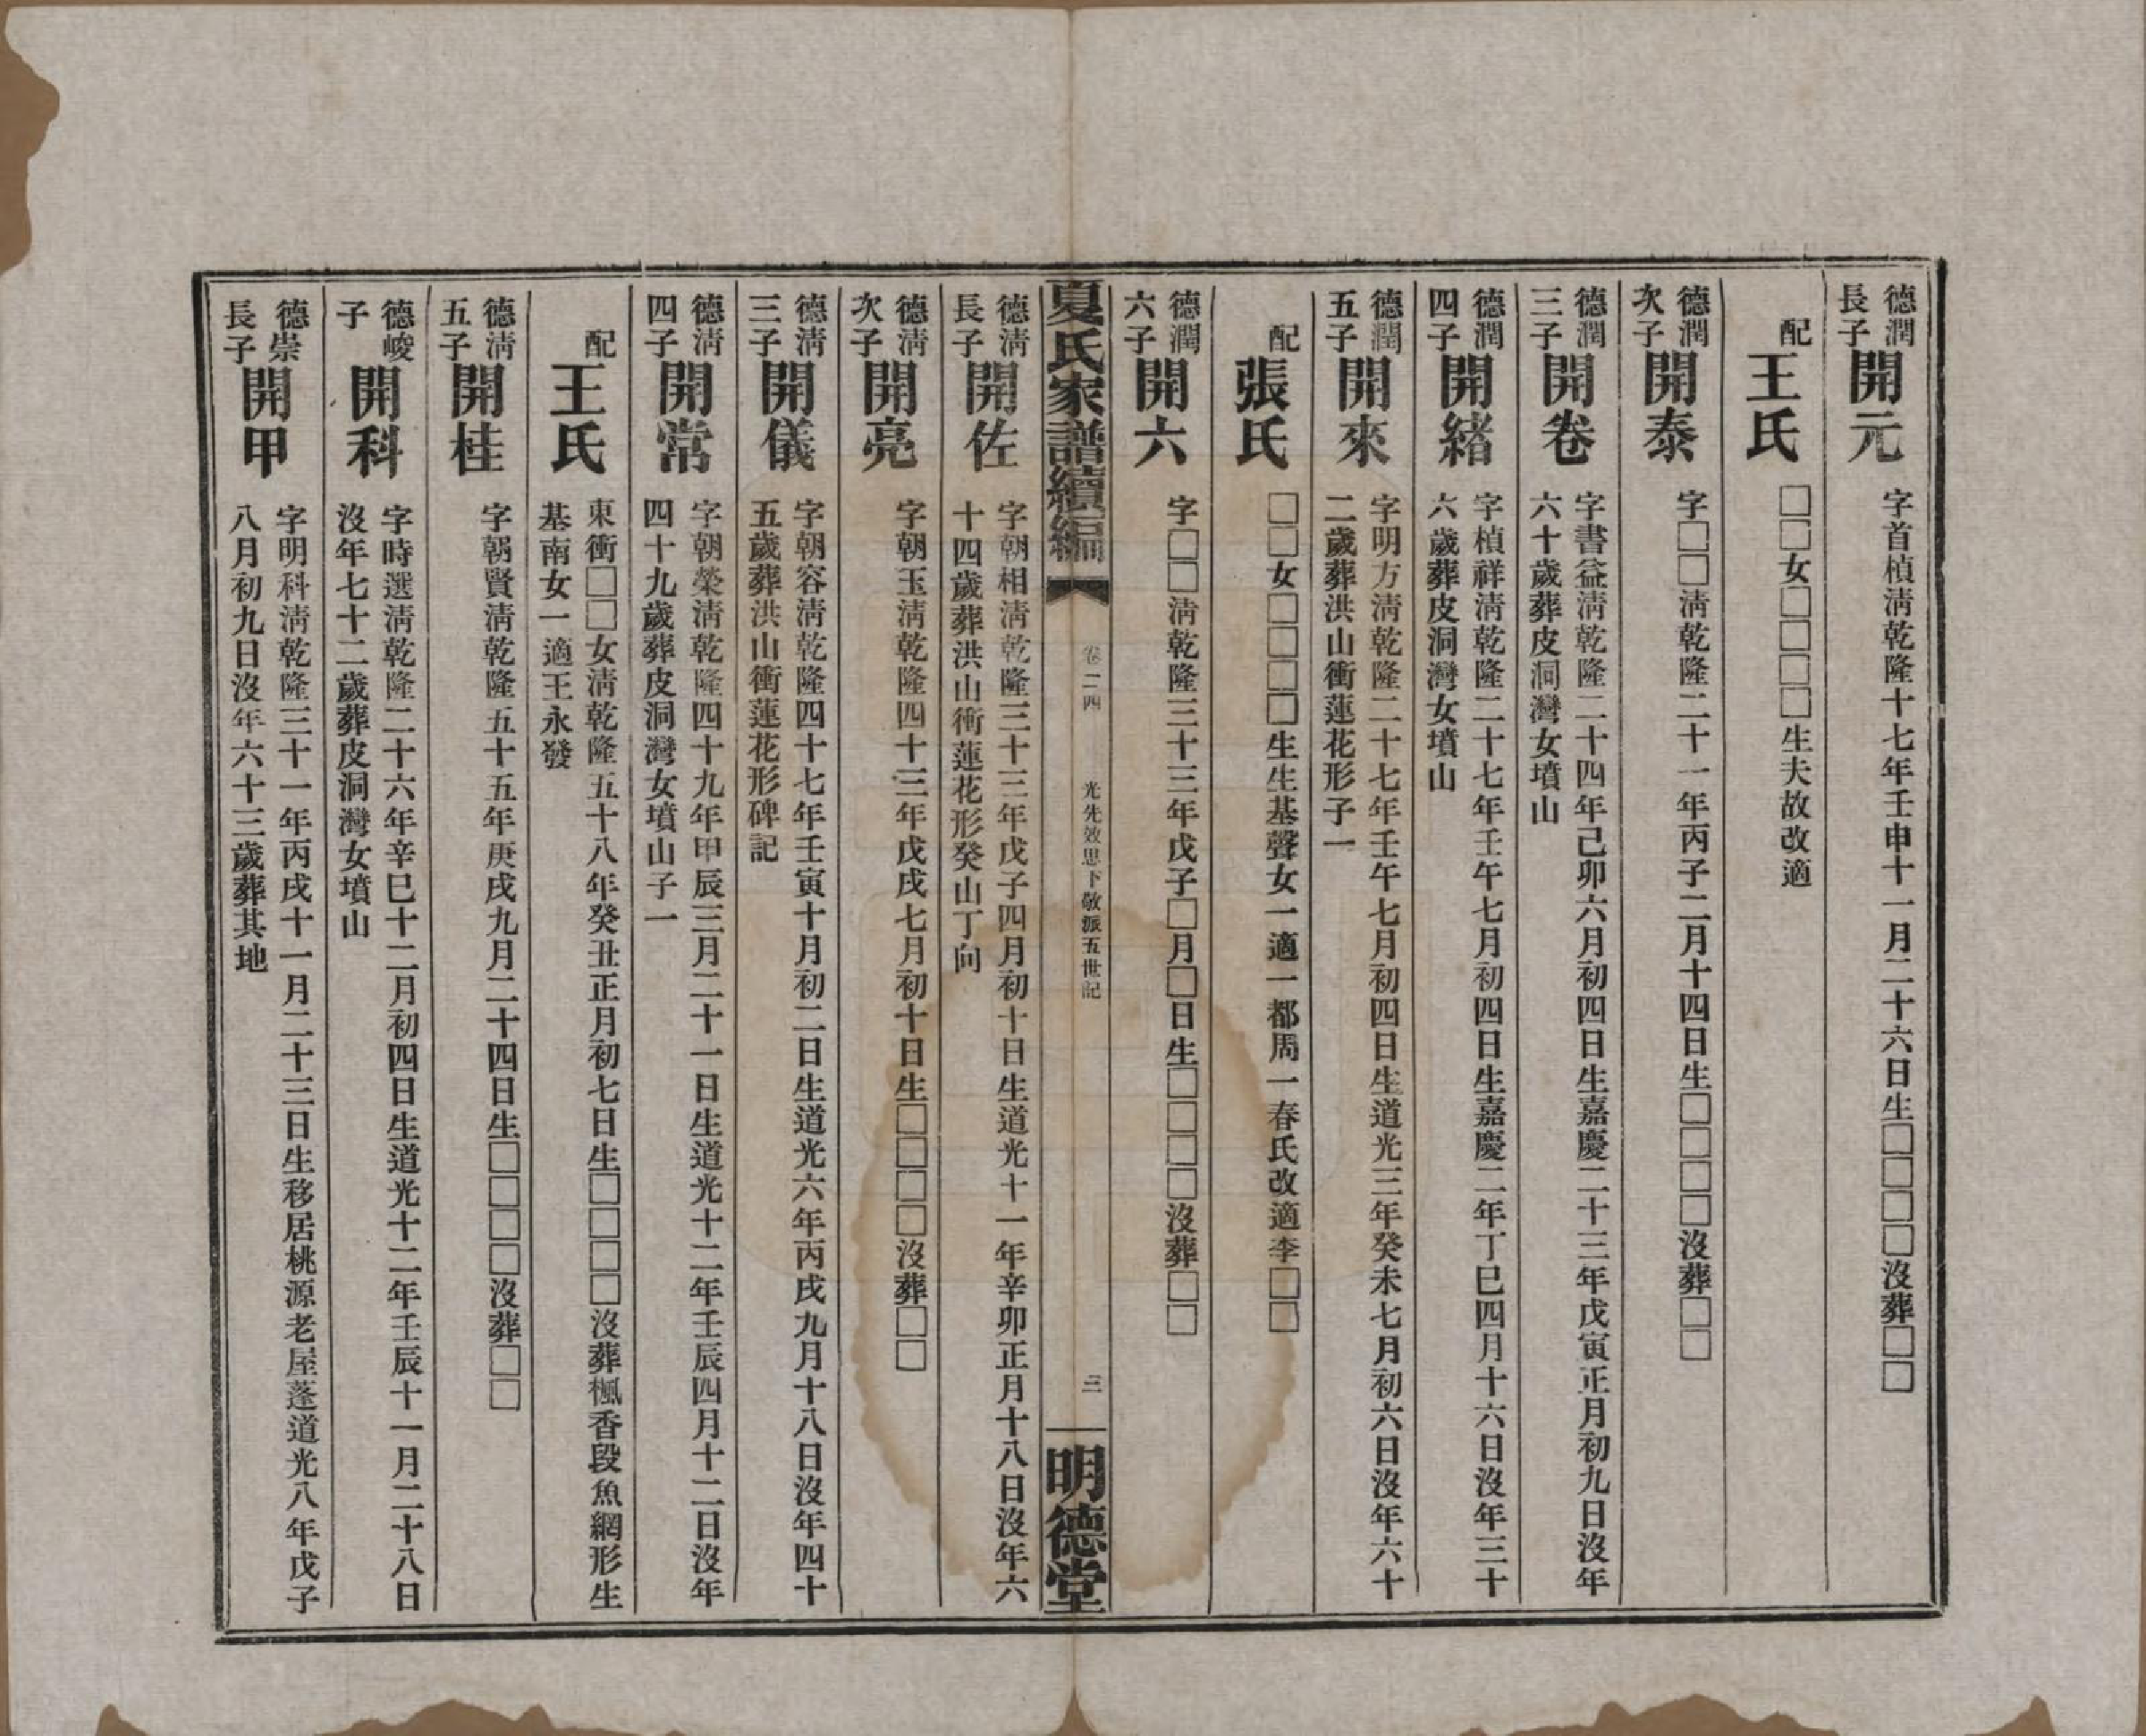 德潤
長子
開元
字首楨淸乾隆十七年壬申十一月二十六日生□□□□沒葬□□
配
王氏
□□女□□□□生夫故改適
德潤
次子
開泰
字□□淸乾隆二十一年丙子二月十四日生□□□□沒葬□□
德潤
三子
開卷
字書益淸乾隆二十四年己卯六月初四日生嘉慶二十三年戊寅正月初九日沒年
六十歲葬皮洞灣女墳山
德潤
四子
開緒
字楨祥淸乾隆二十七年壬午七月初四日生嘉慶二年丁巳四月十六日沒年三十
六歲葬皮洞灣女墳山
德潤
五子
開來
字明方淸乾隆二十七年壬午七月初四日生道光三年癸未七月初六日沒年六十
二歲葬洪山衝蓮花形子一
配
張氏
□□女□□□□生生基聲女一適一都周一春氏改適李□□
德潤
六子
開六
字□□淸乾隆三十三年戊子□月□日生□□□□沒葬□□
夏氏家譜續編
卷二四
光先效思下敬派五世記
三
明德堂
德淸
長子
開佐
字朝相淸乾隆三十三年戊子四月初十日生道光十一年辛卯正月十八日沒年六
十四歲葬洪山衝蓮花形癸山丁向
德淸
次子
開亮
字朝玉淸乾隆四十三年戊戌七月初十日生□□□□沒葬□□
德淸
三子
開儀
字朝容淸乾隆四十七年壬寅十月初二日生道光六年丙戌九月十八日沒年四十
五歲葬洪山衝蓮花形碑記
德淸
四子
開常
字朝榮淸乾隆四十九年甲辰三月二十一日生道光十二年壬辰四月十二日沒年
四十九歲葬皮洞灣女墳山子一
配
王氏
東衝□□女淸乾隆五十八年癸丑正月初七日生□□□□沒葬楓香段魚網形生
基南女一適王永發
德淸
五子
開桂
字朝賢淸乾隆五十五年庚戌九月二十四日生□□□□沒葬□□
德峻
子
開科
字時選淸乾隆二十六年辛巳十二月初四日生道光十二年壬辰十一月二十八日
沒年七十二歲葬皮洞灣女墳山
德崇
長子
開甲
字明科淸乾隆三十一年丙戌十一月二十三日生移居桃源老屋蓬道光八年戊子
八月初九日沒年六十三歲葬其地